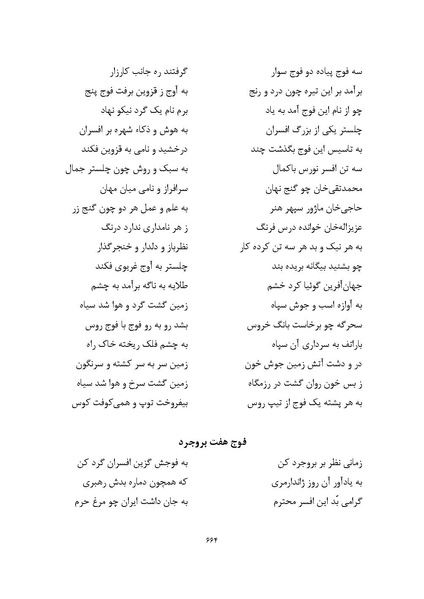 سه فوج پیاده دو فوج سوار گرفتند ره جانب کارزار
برآمد بر این تیره چون درد و رنج به آوج ز قزوین برفت فوج پنج
چو از نام این فوج آمد به یاد برم نام یک گرد نیکو نهاد
چلستر یکی از بزرگ افسران به هوش و ذکاء شهره بر افسران
به تاسیس این فوج بگذشت چند درخشید و نامی به قزوین فکند
سه تن افسر نورس باکمال به سبک و روش چون چلستر جمال
محمدتقی‌خان چو گنج نهان سرافراز و نامی میان مهان
حاجی‌خان ماژور سپهر هنر به علم و عمل هر دو چون گنج زر
عزیزاله‌خان خوانده درس فرنگ ز هر نامداری ندارد درنگ
به هر نیک و بد هر سه تن کرده کار نظرباز و دلدار و خنجرگذار
چو بشنید بیگانه بریده بند چلستر به آوج غریوی فکند
جهان‌آفرین گوئیا کرد خشم طلایه به ناگه برآمد به چشم
به آوازه اسب و جوش سپاه زمین گشت گرد و هوا شد سیاه
سحرگه چو برخاست بانگ خروس بشد رو به رو فوج با فوج روس
باراتف به سرداری آن سپاه به چشم فلک ریخته خاک راه
در و دشت آتش زمین جوش خون زمین سر به سر کشته و سرنگون
ز بس خون روان گشت در رزمگاه زمین گشت سرخ و هوا شد سیاه
به هر پشته یک فوج از تیپ روس بیفروخت توپ و همی‌کوفت کوس
فوج هفت بروجرد
زمانی نظر بر بروجرد کن به فوجش گزین افسران گرد کن
به یادآور آن روز ژاندارمری که همچون دماره بدش رهبری
گرامی بُد این افسر محترم به جان داشت ایران چو مرغ حرم
۶۶۴